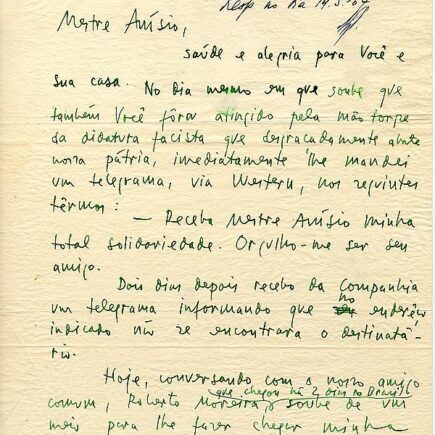 Resp no dia 14.5.64
Mestre Anísio,
saúde e alegria para Você e
sua casa. No dia mesmo em que soube que
também Você fôra atingido pela mão torpe
da didatura facista que desgraçadamente abate
nossa pátria, imediatamente lhe mandei
um telegrama, via Western, nos seguintes
têrmos:
— Receba Mestre Anísio minha
total solidariedade. Orgulho-me ser seu
amigo.
Dois dias depois recebo da Companhia
um telegrama informando que no enderêço
indicado não se encontrara o destinatá-
rio.
Hoje, conversando com o nosso amigo
que chegou há 2 dias do Brasil
comum, Roberto Moreira, soube de um
meio para lhe fazer chegar minha